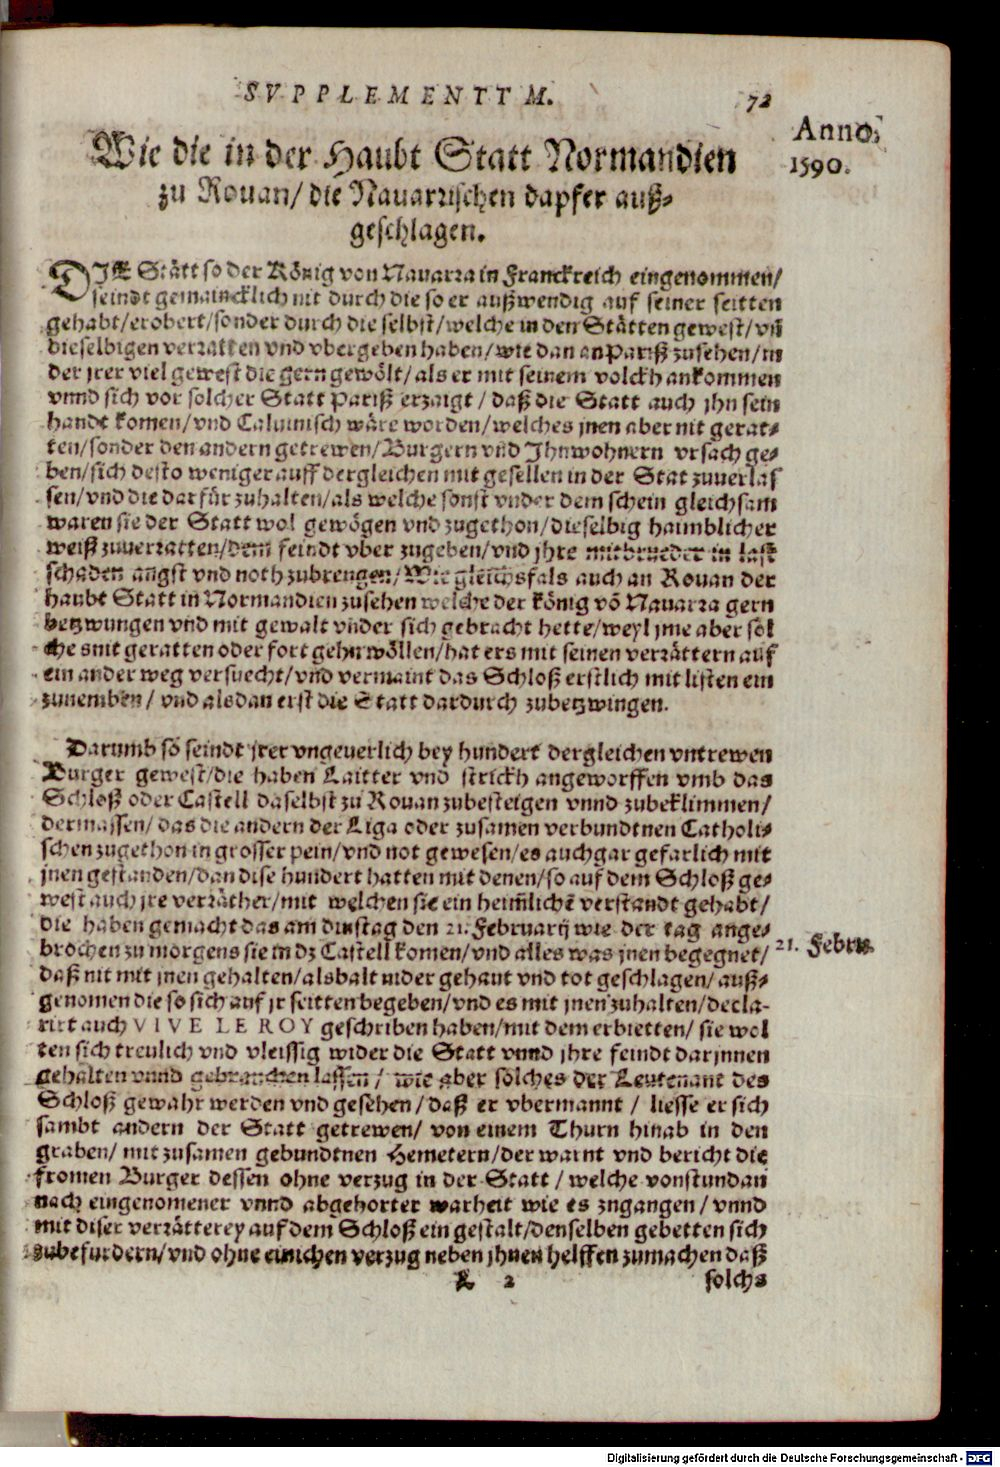 SVPPLEMENTTM.
72
Anno.
1590.
Wie die in der Haubt Statt Normandien
zu Rouan/ die Nauarrischen dapfer auß-
geschlagen.
DIE Stätt so der König von Nauarra in Franckreich eingenommen/
seindt gemaincklich nit durch die so er außwendig auf seiner seitten
gehabt/erobert/sonder durch die selbst/welche in den Stätten gewest/vñ
dieselbigen verratten vnd vbergeben haben/wie dan an Pariß zusehen/in
der jrer viel gewest die gern gewölt/als er mit seinem volckh ankommen
vnnd sich vor solcher Statt Pariß erzaigt/daß die Statt auch jhn sein
handt komen/vnd Caluinisch wäre worden/welches jnen aber nit gerat-
ten/sonder den andern getrewen/Burgern vnd Jhnwohnern vrsach ge-
ben/sich desto weniger auff dergleichen mit gesellen in der Stat zuuerlas
sen/vnd die dar für zuhalten/als welche sonst vnder dem schein gleichsam
waren sie der Statt wol gewögen vnd zugethon/dieselbig haimblicher
weiß zuuerratten/dem feindt vber zugeben/vnd jhre mitbrueder in last
schaden angst vnd noth zubrengen/Wie gleichsfals auch an Rouan der
haubt Statt in Normandien zusehen welche der könig võ Nauarra gern
betzwungen vnd mit gewalt vnder sich gebracht hette/weyl jme aber sol
ches nit geratten oder fort gehn wöllen/hat ers mit seinen verrättern auf
ein ander weg versuecht/vnd vermaint das Schloß erstlich mit listen ein
zunemben/ vnd alsdan erst die Statt dardurch zubetzwingen.
Darumb so seindt jrer vngeuerlich bey hundert dergleichen vntrewen
Burger gewest/die haben Laitter vnd strickh angeworffen vmb das
Schloß oder Castell daselbst zu Rouan zubesteigen vnnd zubeklimmen/
dermassen/das die andern der Liga oder zusamen verbundtnen Catholi-
schen zugethon in grosser pein/vnd not gewesen/es auch gar gefarlich mit
jnen gestanden/dan dise hundert hatten mit denen/so auf dem Schloß ge-
west auch jre verräther/mit welchen sie ein heim̃lichẽ verstandt gehabt/
die haben gemacht das am dinstag den 21. Februarij wie der tag ange-
brochen zu morgens sie in dz Castell komen/vnd alles was jnen begegnet/
21. Febru.
daß nit mit jnen gehalten/alsbalt nider gehaut vnd tot geschlagen/auß-
genomen die so sich auf jr seitten begeben/vnd es mit jnen zuhalten/decla-
rirt auch VIVE LE ROY geschriben haben/mit dem erbietten/ sie wol
ten sich treulich vnd vleissig wider die Statt vnnd jhre feindt darjnnen
gehalten vnnd gebrauchen lassen/ wie aber solches der Leutenant des
Schloß gewahr werden vnd gesehen/daß er vbermannt/ liesse er sich
sambt andern der Statt getrewen/ von einem Thurn hinab in den
graben/ mit zusamen gebundtnen Hemetern/der warnt vnd bericht die
fromen Burger dessen ohne verzug in der Statt/welche vonstundan
nach eingenomener vnnd abgehorter warheit wie es zugangen/vnnd
mit diser verrätterey auf dem Schloß ein gestalt/denselben gebetten sich
zubefurdern/vnd ohne einichen verzug neben jhnen helffen zumachen daß
L 2
solchs
Digitalisierung gefördert durch die Deutsche Forschungsgemeinschaft - DFG